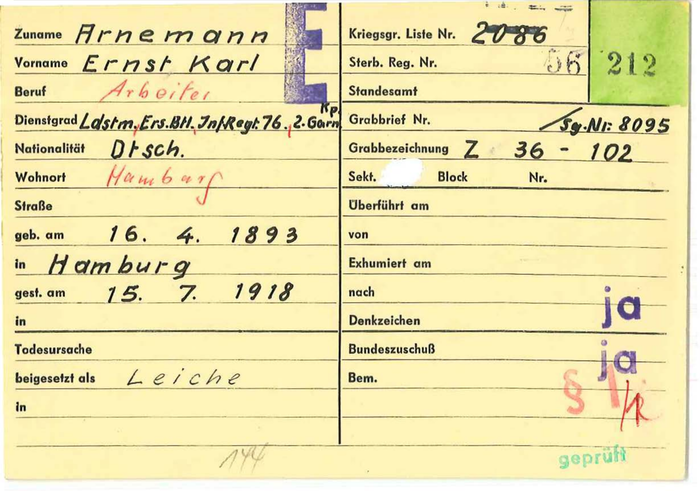 E
Zuname Arnemann
Vorname Ernst Karl
Beruf Arbeiter
Dienstgrad Ldstm., Ers. Btl. Inf. Regt. 76., 2. Garn. Kp.
Nationalität Dtsch.
Wohnort Hamburg
Straße
geb. am 16. 4. 1893
in Hamburg
gest. am 15. 7. 1918
in
Todesursache
beigesetzt als Leiche
in
144
Kriegsgr. Liste Nr. 2086
Sterb. Reg. Nr. 56 212
Standesamt
Grabbrief Nr. /Sg. Nr: 8095
Grabbezeichnung Z 36 - 102
Sekt. Block Nr.
Überführt am
von
Exhumiert am
nach ja
Denkzeichen
Bundeszuschuß ja
Bem. § 1
geprüft